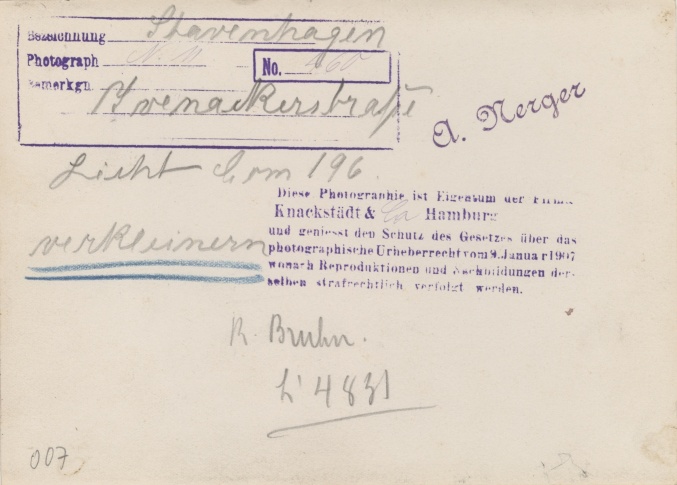 Bezeichnung Stavenhagen
Photograph
No. 460
Bemerkgn. Ivenackerstraße
A. Nerger
Licht Com 196.
Diese Photographie ist Eigentum der Firma
Knackstädt & Co Hamburg
und geniesst den Schutz des Gesetzes über das
photographische Urheberrecht vom 9. Januar 1907
wonach Reproduktionen und Nachbildungen der-
selben strafrechtlich verfolgt werden.
verkleinern
R. Bruhn.
L' 4831
007